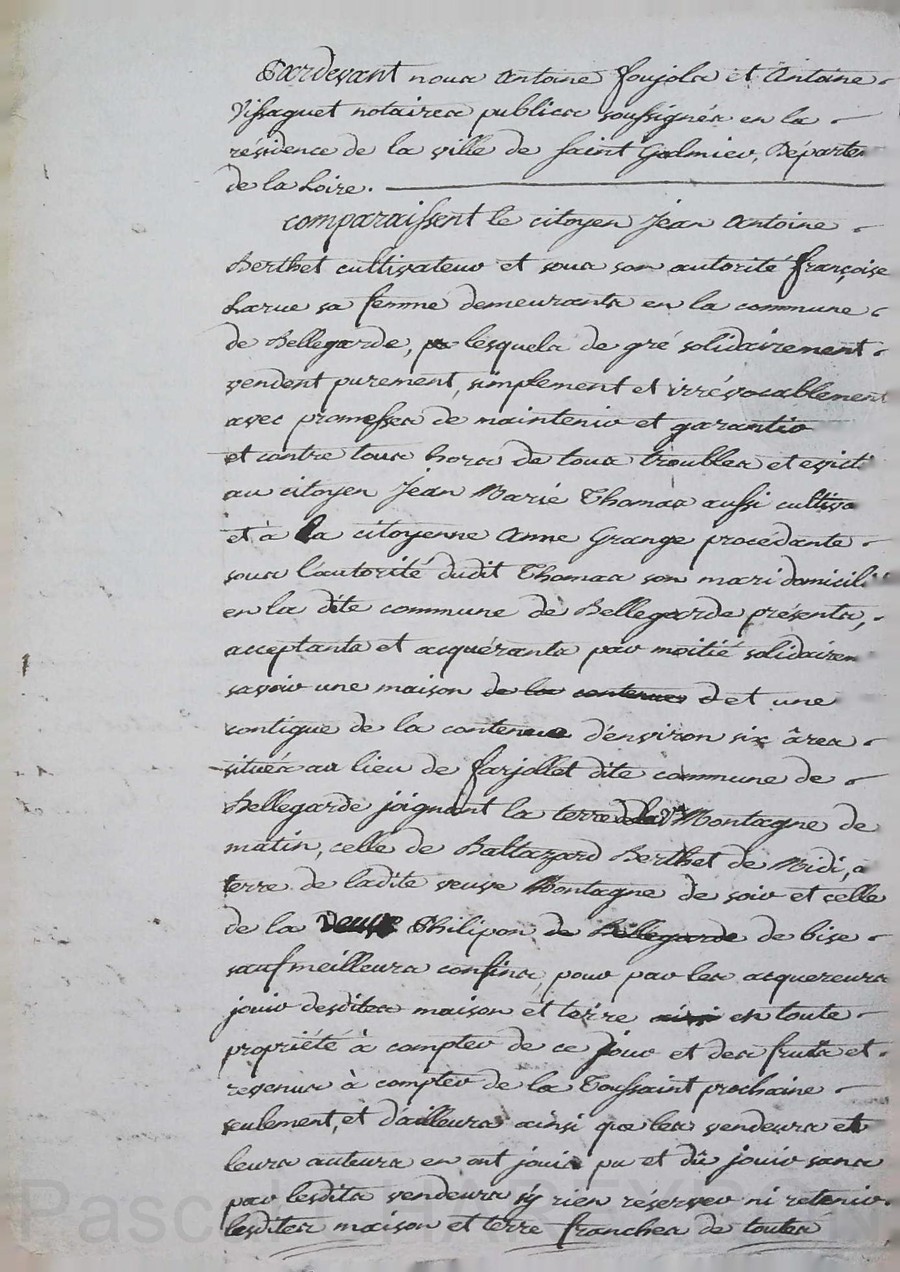 Pardevant nous Antoine Foujols et Antoine
Vissaguet notaires publics soussignés en la
résidence de la ville de Saint Galmier, Départe
de la Loire.
comparaissent le citoyen Jean Antoine
Berthet cultivateur et sous son autorité françoise
Larue sa femme demeurants en la commune
de Bellegarde, lesquels de gré solidairement
vendent purement, simplement et irrévocablement
avec promesses de maintenir et garantir
et contre tous hors de tous troubles et evicti
au citoyen Jean Marie Thomas aussi cultiva
et à la citoyenne Anne Grange procédante
sous l'autorité dudit Thomas son mari domicili
en la dite commune de Bellegarde présents,
acceptants et acquérants par moitié solidairem
savoir une maison de la contenue et une
contigue de la contenue d'environ six âres
situés au lieu de farjollet dite commune de
Bellegarde joignant la terre de la Ve Montagne de
matin, celle de Baltazard Berthet de Midi, a
terre de ladite veuve Montagne de soir et celle
de la veuve Philipon de Bellegarde de bise
sauf meilleurs confins, pour par les acquereurs
jouir desdites maison et terre ainsi en toute
propriété à compter de ce jour et des fruits et
revenus à compter de la Toussaint prochaine
seulement, et d'ailleurs ainsi que les vendeurs et
leurs auteurs en ont joui pu et dû jouir sans
par lesdits vendeurs s'y rien réserver ni retenir
lesdites maison et terre franches de toutes
Pascal